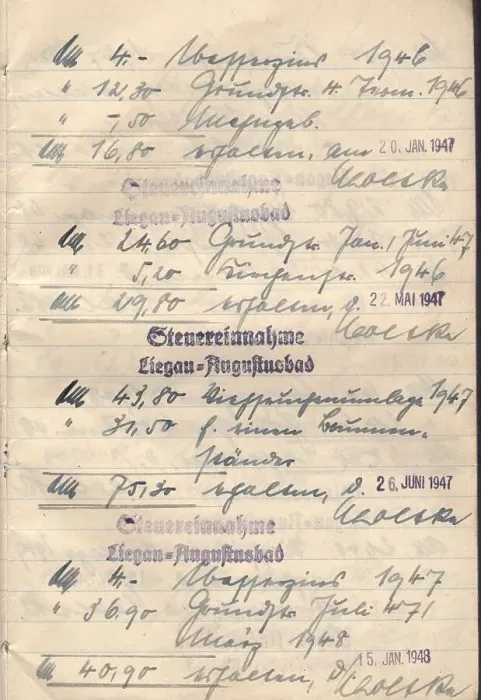 RM 4.- Wasserzins 1946
" 12,30 Grundst. 4. Term. 1946
" -,50 Mahngeb.
RM 16,80 erhalten, am 20. JAN. 1947
Steuereinnahme
Liegau=Augustusbad
RM 24.60 Grundst. Jan./Juni 47
" 5,20 Kirchenst. 1946
RM 29,80 erhalten, d. 22. MAI 1947
Steuereinnahme
Liegau=Augustusbad
RM 43,80 Viehseuchenumlage 1947
" 31,50 f. einen Brunnen-
ständer
RM 75,30 erhalten, d. 26. JUNI 1947
Steuereinnahme
Liegau=Augustusbad
RM 4.- Wasserzins 1947
" 36.90 Grundst. Juli 47/
März 1948
RM 40,90 erhalten, d. 15. JAN. 1948